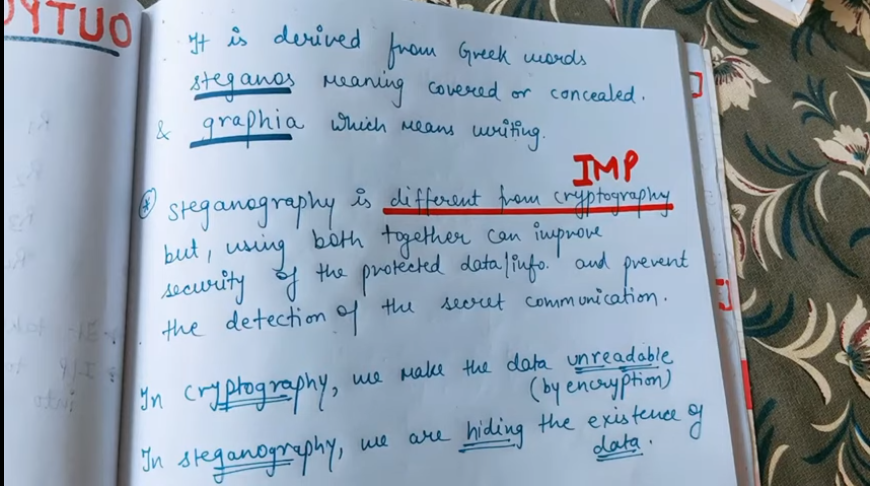 It is derived from Greek words
steganos meaning covered or concealed.
& graphia which means writing.
IMP
* steganography is different from cryptography
but, using both together can improve
security of the protected data/info. and prevent
the detection of the secret communication.
In cryptography, we make the data unreadable
(by encryption)
In steganography, we are hiding the existence of
data.